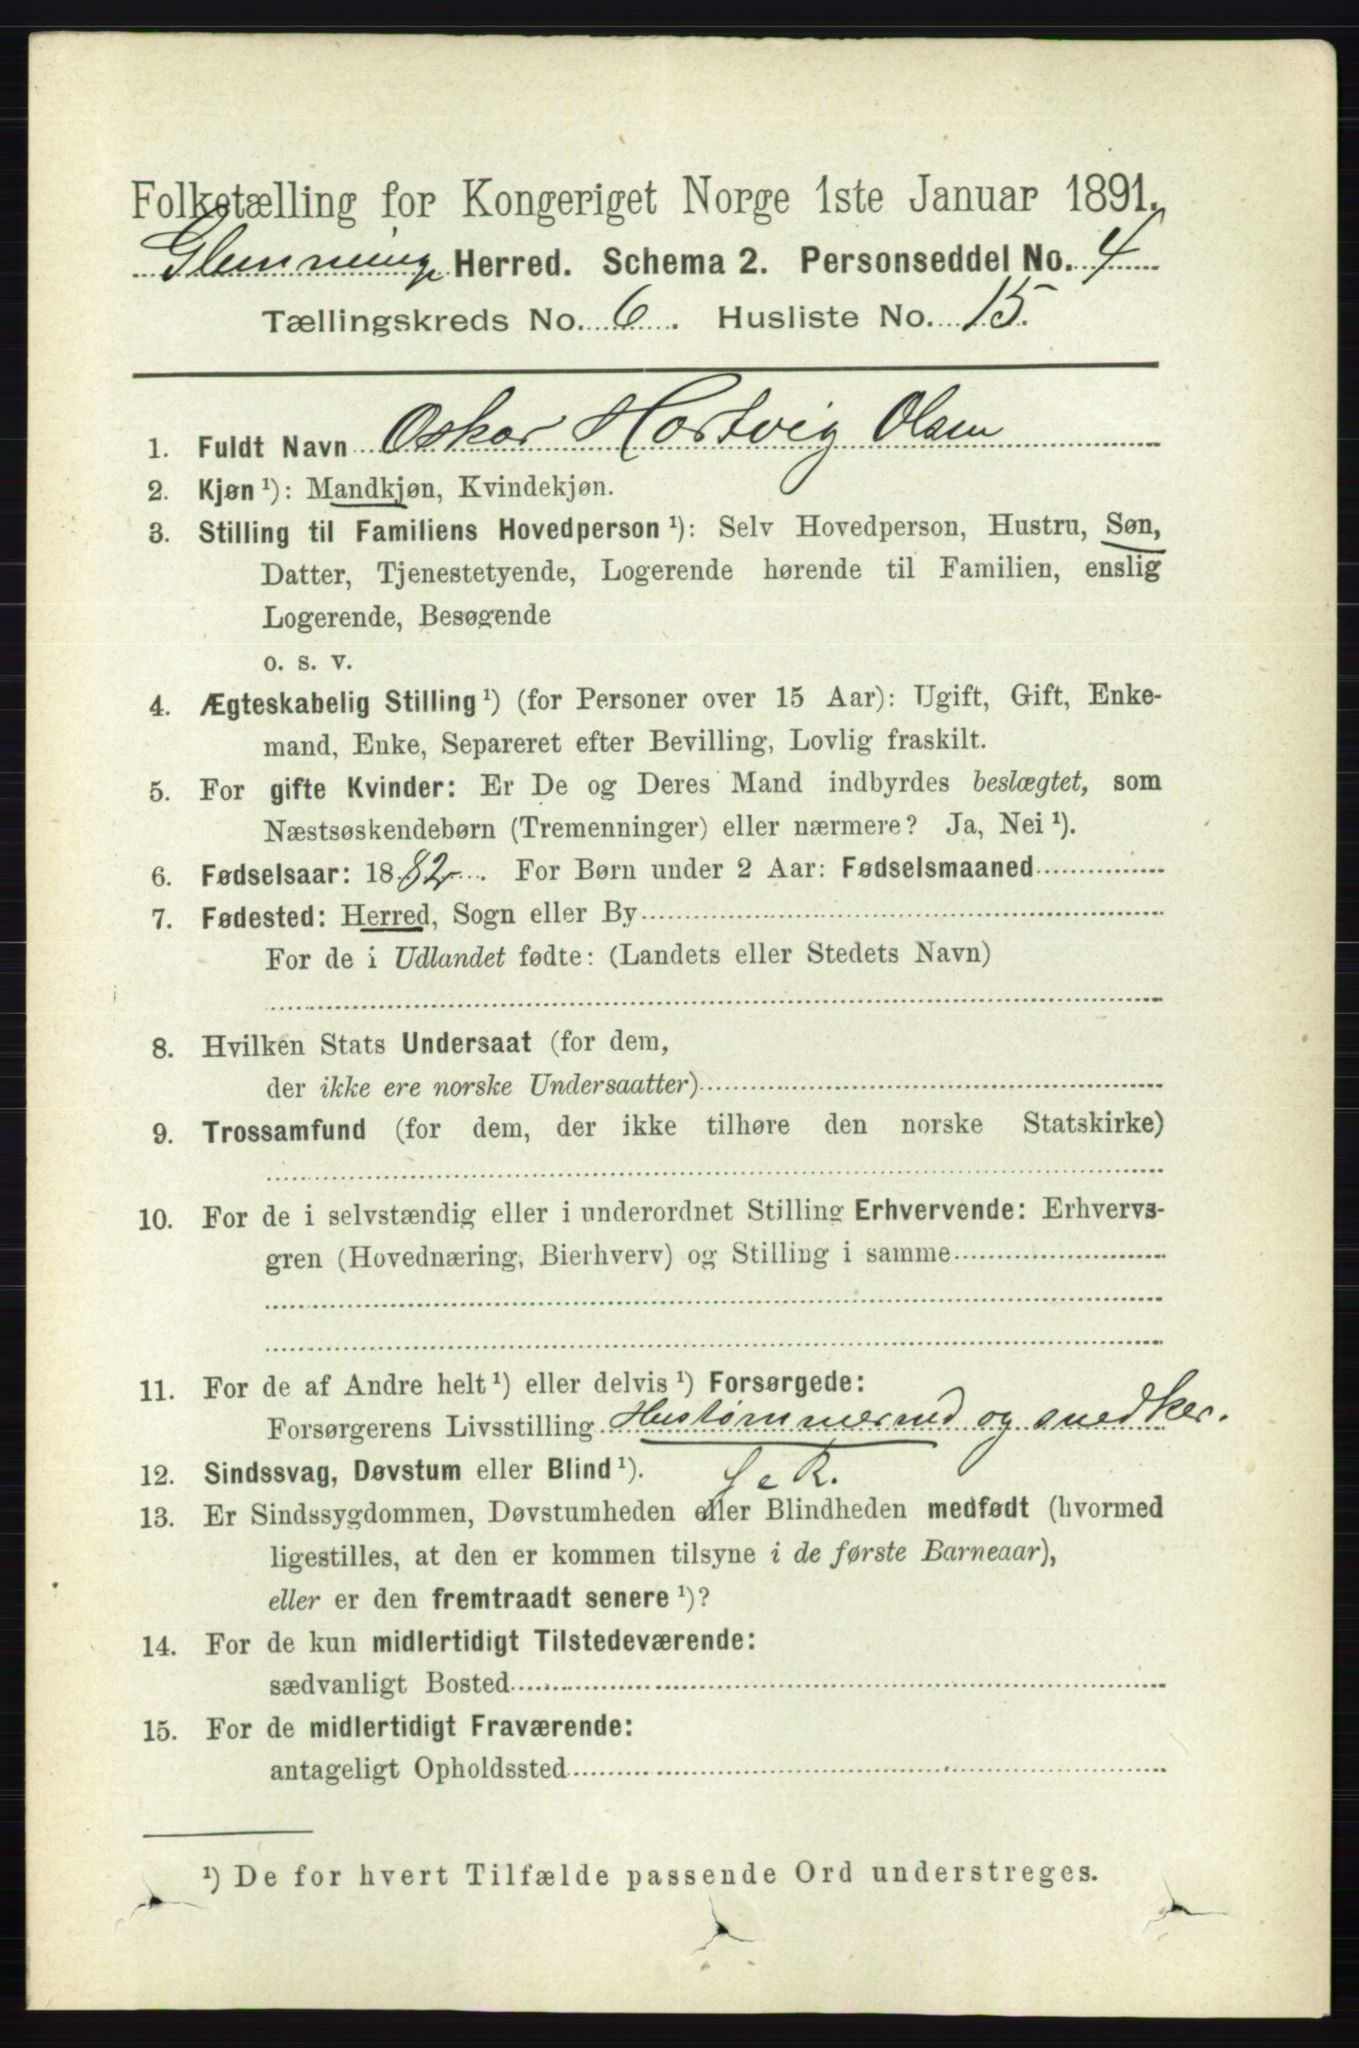 Folketælling for Kongeriget Norge 1ste Januar 1891.
Glemminge Herred. Schema 2. Personseddel No. 4
Tællingskreds No. 6. Husliste No. 15.
1. Fuldt Navn Oskar Hartvig Olsen
2. Kjøn ¹): Mandkjøn, Kvindekjøn.
3. Stilling til Familiens Hovedperson ¹): Selv Hovedperson, Hustru, Søn,
Datter, Tjenestetyende, Logerende hørende til Familien, enslig
Logerende, Besøgende
o. s. v.
4. Ægteskabelig Stilling ¹) (for Personer over 15 Aar): Ugift, Gift, Enke-
mand, Enke, Separeret efter Bevilling, Lovlig fraskilt.
5. For gifte Kvinder: Er De og Deres Mand indbyrdes beslægtet, som
Næstsøskendebørn (Tremenninger) eller nærmere? Ja, Nei ¹).
6. Fødselsaar: 1882. For Børn under 2 Aar: Fødselsmaaned
7. Fødested: Herred, Sogn eller By
For de i Udlandet fødte: (Landets eller Stedets Navn)
8. Hvilken Stats Undersaat (for dem,
der ikke ere norske Undersaatter)
9. Trossamfund (for dem, der ikke tilhøre den norske Statskirke)
10. For de i selvstændig eller i underordnet Stilling Erhvervende: Erhvervs-
gren (Hovednæring, Bierhverv) og Stilling i samme
11. For de af Andre helt ¹) eller delvis ¹) Forsørgede:
Forsørgerens Livsstilling Hustømmermd og snedker.
12. Sindssvag, Døvstum eller Blind ¹).
13. Er Sindssygdommen, Døvstumheden eller Blindheden medfødt (hvormed
ligestilles, at den er kommen tilsyne i de første Barneaar),
eller er den fremtraadt senere ¹)?
14. For de kun midlertidigt Tilstedeværende:
sædvanligt Bosted
15. For de midlertidigt Fraværende:
antageligt Opholdssted
¹) De for hvert Tilfælde passende Ord understreges.